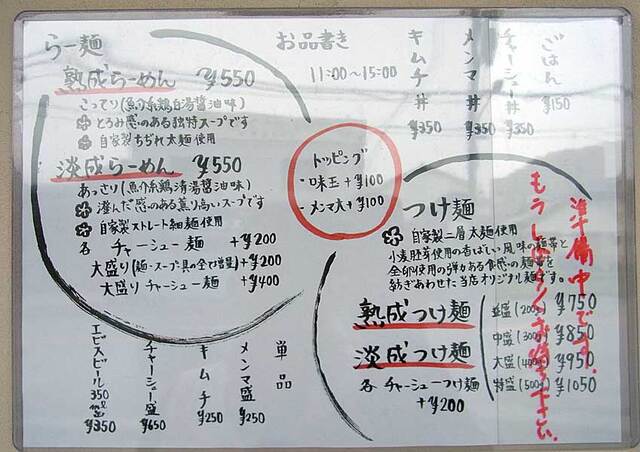 お品書き
11:00〜15:00
らー麺
熟成らーめん ¥550
こってり(魚介系鶏白湯醤油味)
とろみ感のある独特スープです
自家製ちぢれ太麺使用
淡成らーめん ¥550
あっさり(魚介系鶏清湯醤油味)
澄んだ感のある薫り高いスープです
自家製ストレート細麺使用
各 チャーシュー麺 +¥200
大盛り(麺・スープ・具の全て増量) +¥200
大盛りチャーシュー麺 +¥400
トッピング
・味玉+¥100
・メンマ大+¥100
ごはん ¥150
チャーシュー丼 ¥350
メンマ丼 ¥350
キムチ丼 ¥350
つけ麺
自家製二層太麺使用
小麦胚芽使用の香ばしい風味の麺帯と
全卵使用の弾力ある食感の麺帯を
紡ぎあわせた当店オリジナル麺です。
熟成つけ麺
淡成つけ麺
並盛(200g) ¥750
中盛(300g) ¥850
大盛(400g) ¥950
特盛(500g) ¥1050
各 チャーシューつけ麺
+¥200
準備中です。
もうしばらくお待ち下さい。
単品
メンマ盛 ¥250
キムチ ¥250
チャーシュー盛 ¥650
エビスビール 350ml缶 ¥350